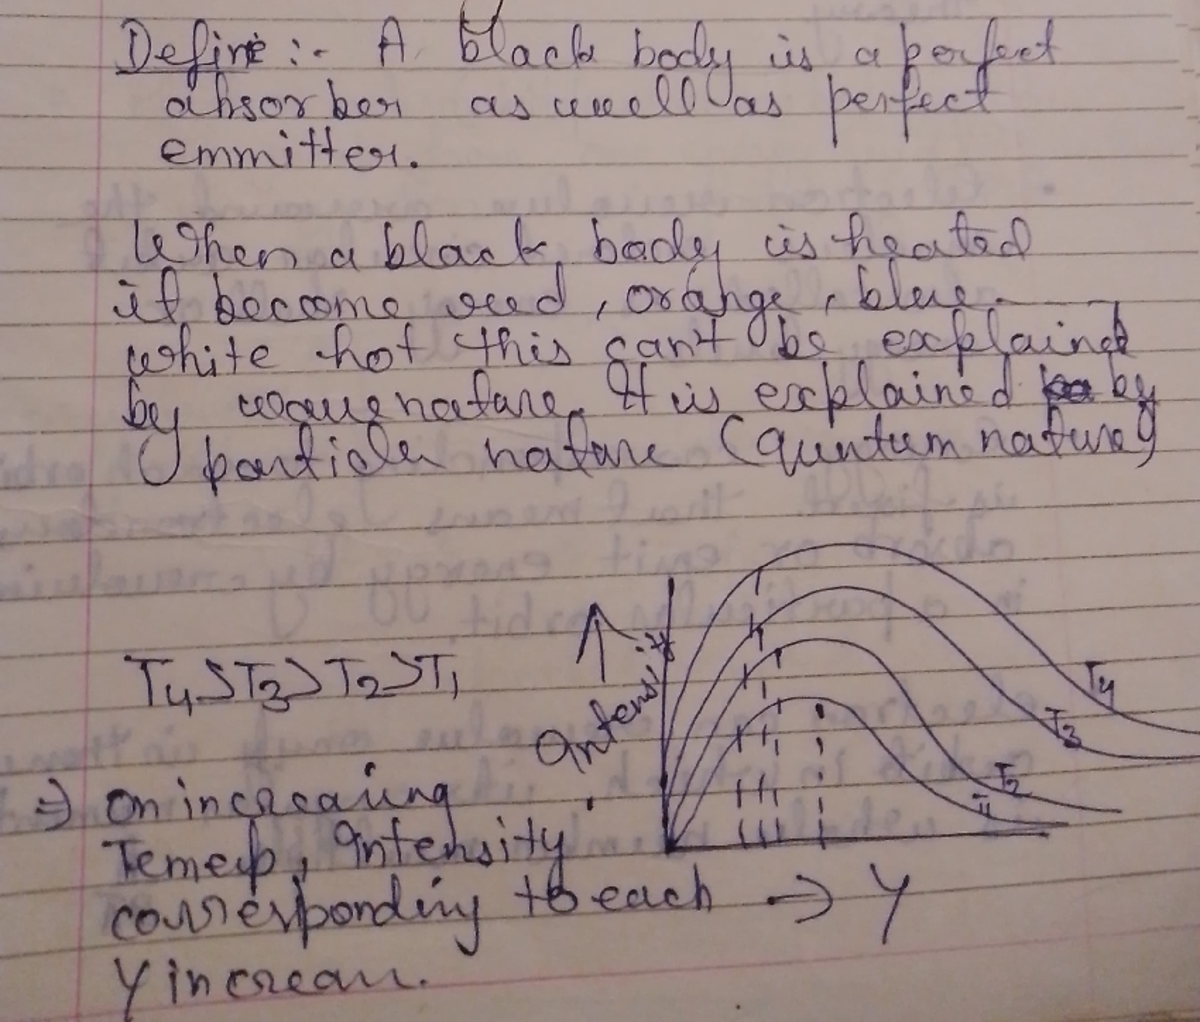 Define :- A black body is a perfect
absorber as well as perfect
emmitter.
When a black body is heated
it become red, orange, blue
white hot this can't be explained
by wave nature. It is explained by
particle nature (quntum nature)
T4>T3>T2>T1
Intensity
T4
T3
T2
T1
⇒ On increasing
Temep, Intensity
corresponding to each → γ
γ increase.